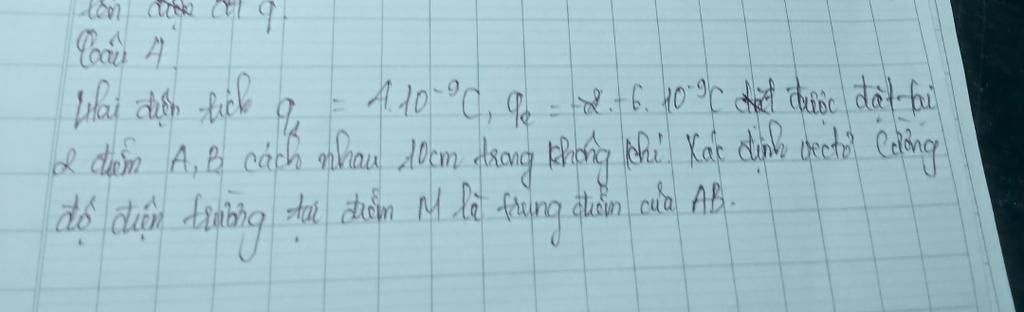 Câu 4
Hai điện tích q₁ = 4.10⁻⁹C, q₂ = -6.10⁻⁹C được đặt tại
2 điểm A, B cách nhau 10cm trong không khí Xác định vectơ cường
độ điện trường tại điểm M là trung điểm của AB.